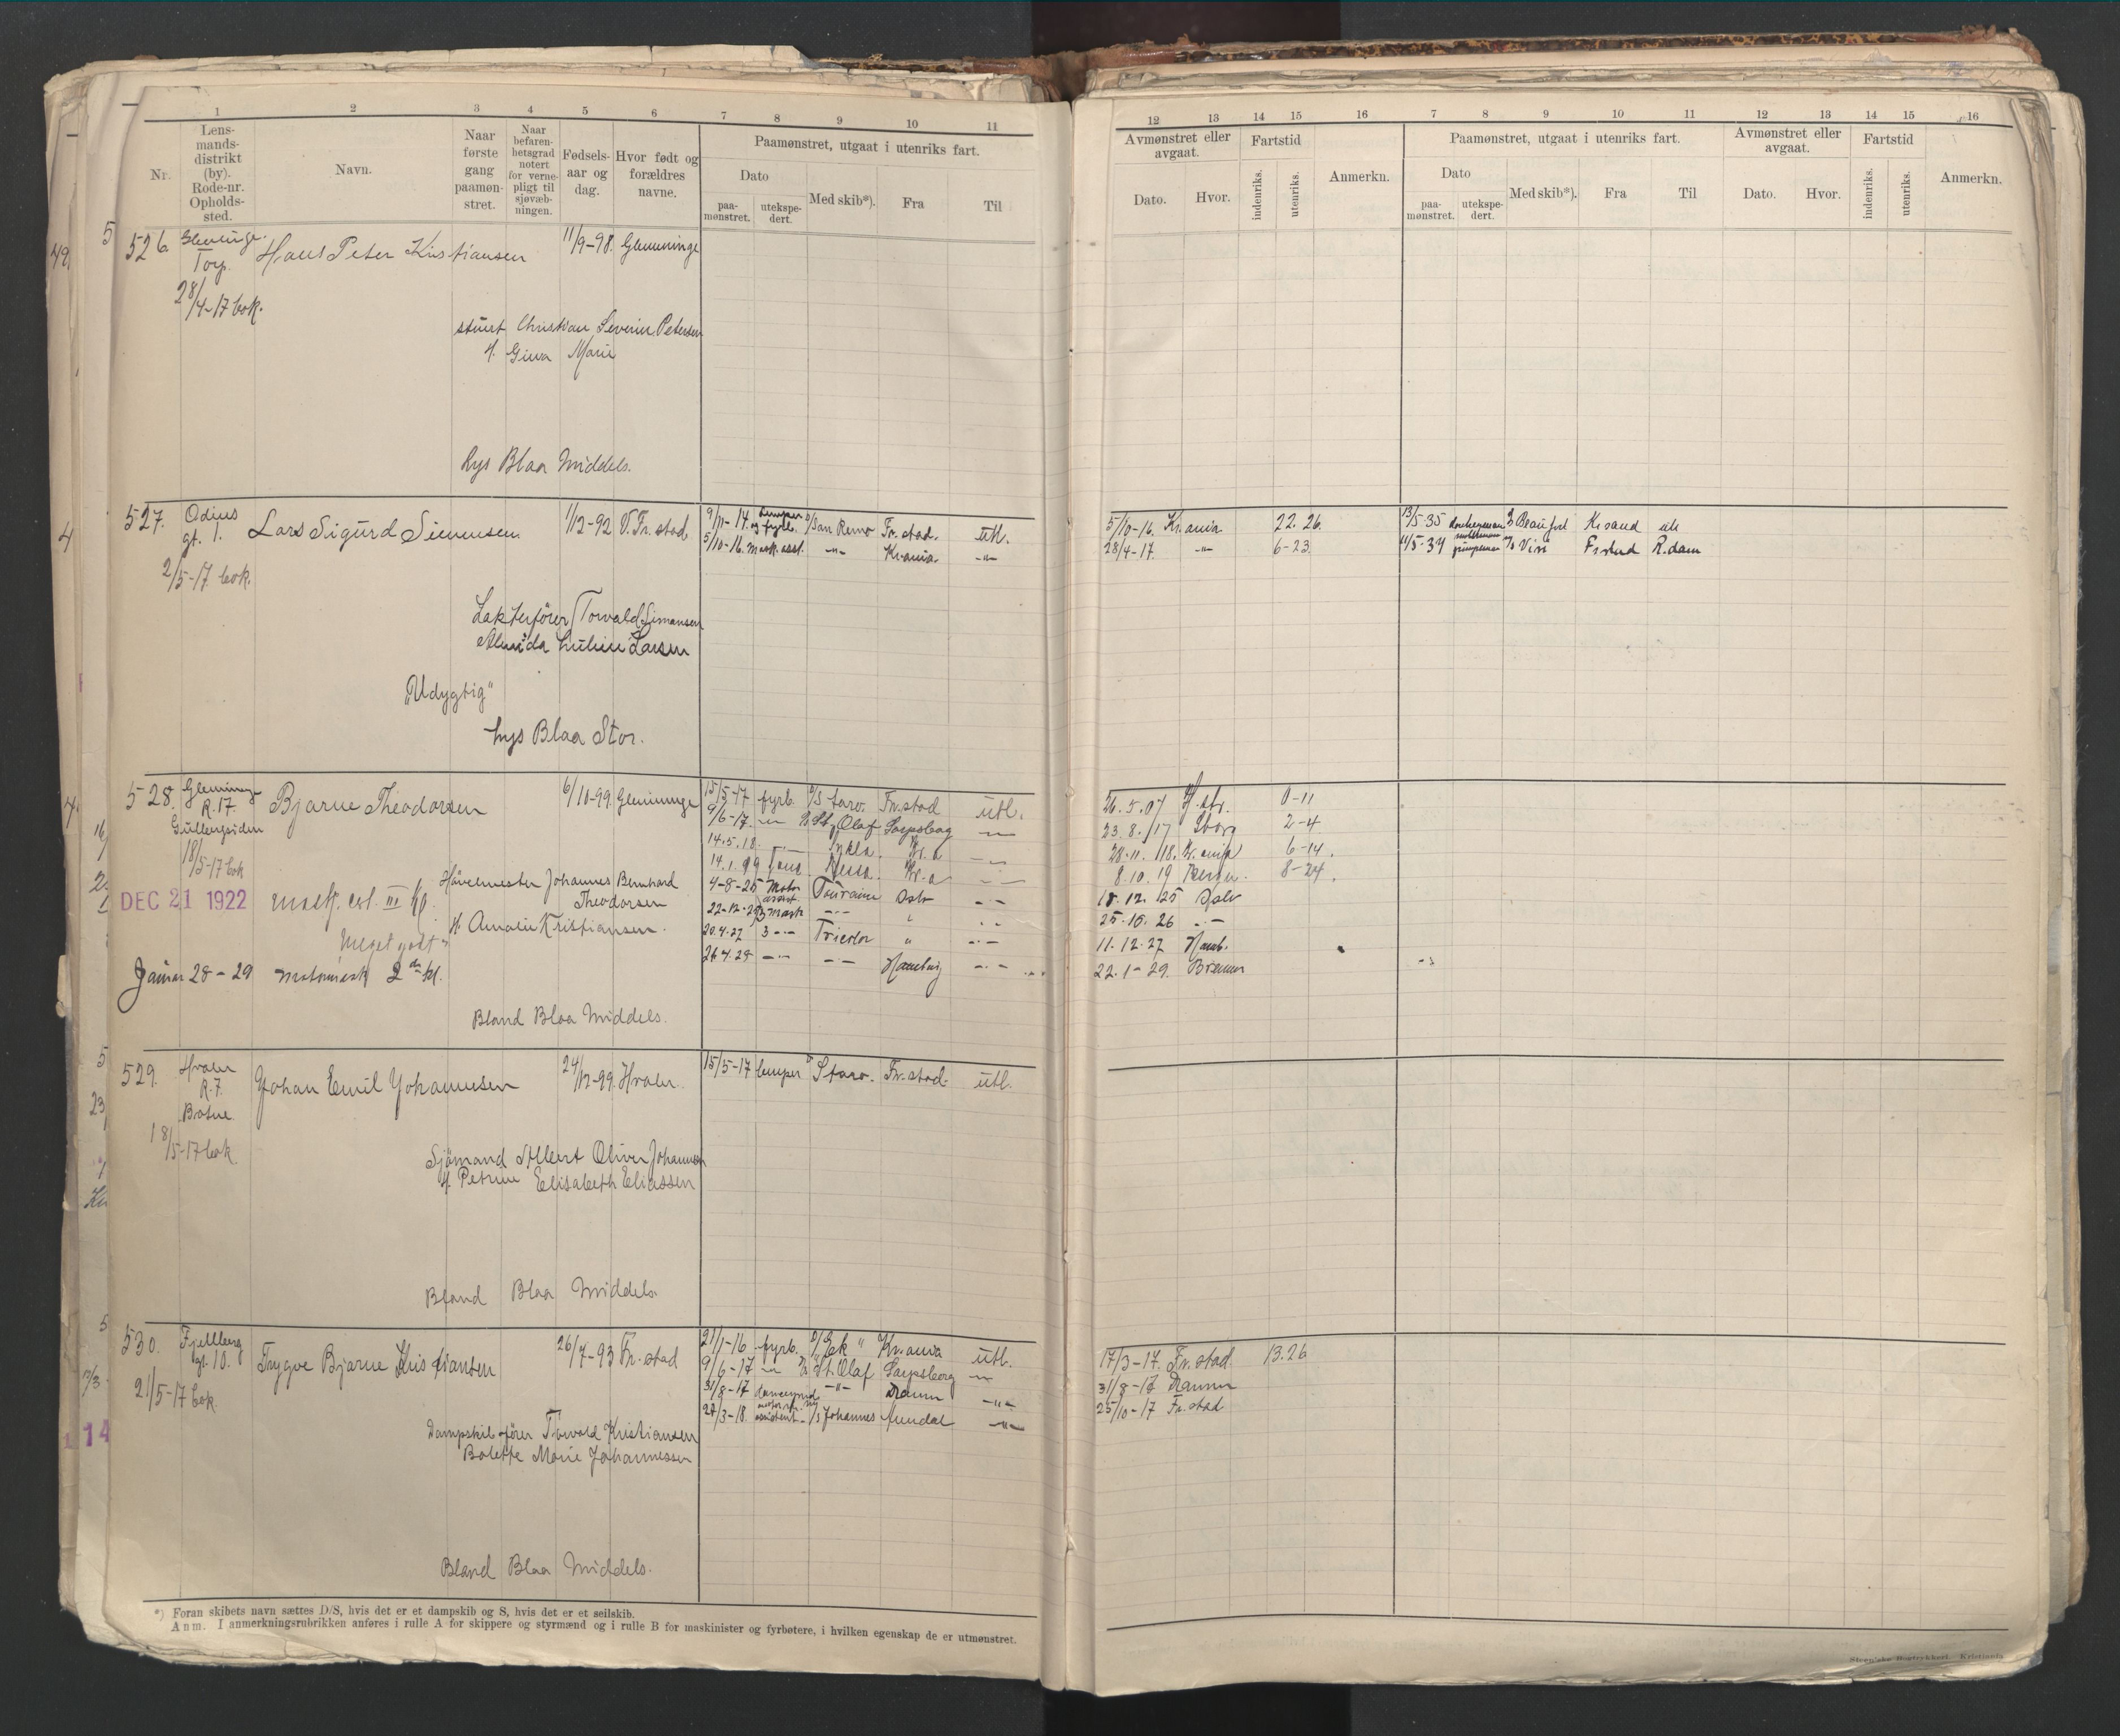 1 2 3 4 5 6 7 8 9 10 11
Nr.
Lens-
mands-
distrikt
(by).
Rode-nr.
Opholds-
sted.
Navn.
Naar
første
gang
paamøn-
stret.
Naar
befaren-
hetsgrad
notert
for verne-
pligt til
sjøvæb-
ningen.
Fødsels-
aar og
dag.
Hvor født og
forældres
navne.
Paamønstret, utgaat i utenriks fart.
Dato
paa-
mønstret.
utekspe-
dert.
Med skib*).
Fra
Til
12 13 14 15 16 7 8 9 10 11 12 13 14 15 16
Avmønstret eller
avgaat.
Dato.
Hvor.
Fartstid
indenriks.
utenriks.
Anmerkn.
Paamønstret, utgaat i utenriks fart.
Dato
paa-
mønstret.
utekspe-
dert.
Med skib*).
Fra
Til
Avmønstret eller
avgaat.
Dato.
Hvor.
Fartstid
indenriks.
utenriks.
Anmerkn.
526. Hans Peter Kristiansen 11/9-98. Glemminge
Torp.
28/4-17 bok.
Christian Severin Petersen
Marie
Lys Blaa Middels.
527. Lars Sigurd Simensen 1/12-92 V. Fr.stad
gt. 1.
2/5-17 bok.
9/11-14. lemper og fyrb. D/S San Remo Fr.stad. utl. 5/10-16. Kr.ania 22. 26.
5/10-16. mask. asst. -"- Kr.ania -"- 28/4-17. -"- 6-23.
13/5-35 Beaufort Kr.sand utl
11/5-37 Fr.stad R.dam
Lekterfører Torvald Simensen
Larsen
"Udygtig"
Lys Blaa Stor.
528. Glemminge Bjarne Theodorsen 6/10-99. Glemminge
R. 17.
18/5-17 bok
15/5-17 fyrb. D/S Fr.stad utl. 0-11
9/6-17. -"- St. Olaf Sarpsborg -"- 23.8./17 Sborg 2-4
14.5.18. Kr.a -"- 28.11./18. Kr.ania 6-14.
Kr.a -"- 8.10.19 8-24.
4-8-25 Motor assist. Touraine Oslo -"- 18.12.25 Oslo
22-12-25 3 mask -"- " -"- 25.10.26 -"-
20.4.27 3 -"- Tricolor " -"- 11.12.27 Hamb.
26.4.28 -"- -"- Hamburg -"- 22.1-29. Bremen
Johannes Bernhard
Theodorsen
DEC 21 1922 mask. III kl.
H. Amalie Kristiansen.
"Meget godt"
28-29 2den kl.
Blond Blaa Middels.
529. Hvaler Johan Emil Johannesen 24/12-99. Hvaler.
R. 7.
18/5-17 bok
15/5-17 lemper Fr.stad. utl.
Sjømand Albert Oliver Johannesen
H. Petrine Elisabeth Eliassen
Blond Blaa Middels
530. Fjellberg Trygve Bjarne Kristiansen 26/7-93 Fr.stad
gt. 10.
21/5-17 bok.
21/1-16 fyrb. D/S "Ek" Kr.ania utl. 17/3-17. Fr.stad. 13.26
9/6-17 -"- St. Olaf Sarpsborg -"- 31/8-17 Dramn
31/8-17 -"- Dramn -"- 25/10-17 Fr.stad
27/3-18. assistent Johannes -"-
Torvald Kristiansen
Bolette Marie Johannessen
Blond Blaa Middels.
*) Foran skibets navn sættes D/S, hvis det er et dampskib og S, hvis det er et seilskib.
Anm. I anmerkningsrubrikken anføres i rulle A for skippere og styrmænd og i rulle B for maskinister og fyrbøtere, i hvilken egenskap de er utmønstret.
Steen'ske Bogtrykkeri. Kristiania